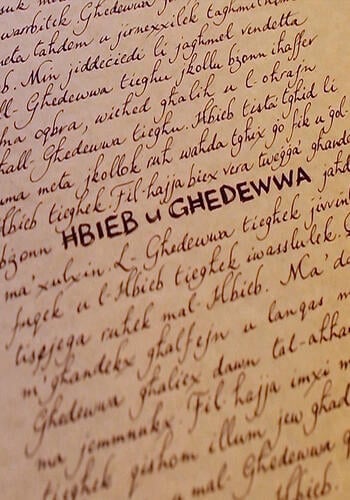 suk
warrbitek Ghedewwa
meta tahdem u jirnexxilek
b. Min jiddeċiedi li jaghmel vendetta
ll-Ghedewwa tieghu jkollu bżonn ihaffer
ma oqbra, wiehed ghalih u l-ohrajn
hall-Ghedewwa tieghu. Hbieb tista' tghid li
uma meta jkollok ruh wahda tghix go fik u gol-
Hbieb tieghek. Fil-hajja biex vera twegga' ghandek
bżonn HBIEB u GHEDEWWA
ma' xulxin. L-Ghedewwa tieghek
u l-Hbieb tieghek iwasslulek.
tispjega ruhek mal-Hbieb. Ma'
m'ghandekx ghalfejn u lanqas
Ghedewwa ghaliex dawn tal-ahhar
ma jemmnukx. Fil-hajja imxi
tieghek qishom illum jew
mal-Ghedewwa
Hbieb.